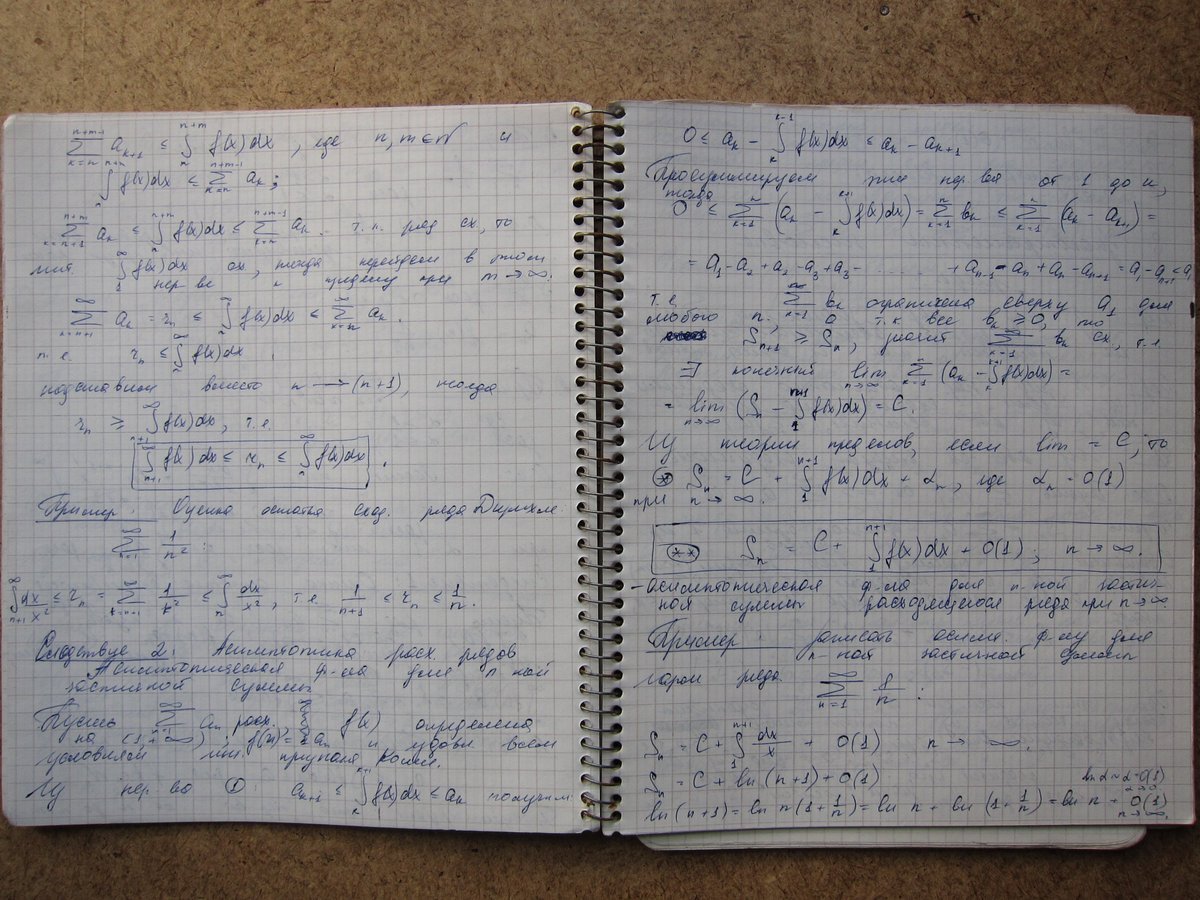 ∑_{k=n}^{n+m-1} a_{k+1} ≤ ∫_n^{n+m} f(x)dx, где n, m ∈ N и
∫_n^{n+m} f(x)dx ≤ ∑_{k=n}^{n+m-1} a_k;
∑_{k=n+1}^{n+m} a_k ≤ ∫_n^{n+m} f(x)dx ≤ ∑_{k=n}^{n+m-1} a_k. Т.к. ряд сх, то
∫^∞ f(x)dx сх, тогда перейдем в этом
нер-ве к пределу при m→∞.
∑_{k=n+1}^∞ a_k = r_n ≤ ∫_n^∞ f(x)dx ≤ ∑_{k=n}^∞ a_k.
т.е. r_n ≤ ∫_n^∞ f(x)dx
подставим вместо n → (n+1), тогда
r_n ≥ ∫_{n+1}^∞ f(x)dx, т.е.
∫_{n+1}^∞ f(x)dx ≤ r_n ≤ ∫_n^∞ f(x)dx.
Пример: Оценка остатка сход. ряда Дирихле
∑_{n=1}^∞ 1/n² :
∫_{n+1}^∞ dx/x² ≤ r_n = ∑_{k=n+1}^∞ 1/k² ≤ ∫_n^∞ dx/x², т.е. 1/(n+1) ≤ r_n ≤ 1/n.
Следствие 2: Асимптотика расх. рядов
Асимптотическая ф-ла для n-ной
частичной суммы
Пусть ∑_{n=1}^∞ a_n расх. f(x) определена
на (1, +∞), f(n) = a_n и удовл всем
условиям инт. признака Коши.
Из нер-ва ① a_{k+1} ≤ ∫_k^{k+1} f(x)dx ≤ a_k получим:
0 ≤ a_k - ∫_k^{k-1} f(x)dx ≤ a_k - a_{k+1}.
Просуммируем эти нер-ва от 1 до n,
тогда
0 ≤ ∑_{k=1}^n (a_k - ∫_k^{k+1} f(x)dx) = ∑_{k=1}^n b_k ≤ ∑_{k=1}^n (a_k - a_{k+1}) =
= a_1 - a_2 + a_2 - a_3 + a_3 - ... + a_{n-1} - a_n + a_n - a_{n+1} = a_1 - a_{n+1} < a_1
т.е. ∑_{k=1} b_k ограничена сверху a_1 для
любого n, а т.к все b_k ≥ 0, то
S_{n+1} ≥ S_n, значит ∑_{k=1}^∞ b_k сх, т.е
∃ конечный lim_{n→∞} ∑_{k=1}^n (a_k - ∫_k^{k+1} f(x)dx) =
= lim_{n→∞} (S_n - ∫_1^{n+1} f(x)dx) = C
Из теории пределов, если lim = C, то
(*) S_n = C + ∫_1^{n+1} f(x)dx + α_n, где α_n = O(1)
при n → ∞.
(**) S_n = C + ∫_1^{n+1} f(x)dx + O(1); n → ∞.
- асимптотическая ф-ла для n-ной частич-
ной суммы расходящегося ряда при n→∞.
Пример: записать асимп. ф-лу для
n-ной частичной суммы
гарм ряда ∑_{n=1}^∞ 1/n :
S_n = C + ∫_1^{n+1} dx/x + O(1) n → ∞.
S_n = C + ln(n+1) + O(1)
ln(n+1) = ln n(1 + 1/n) = ln n + ln(1 + 1/n) = ln n + O(1) n→∞.